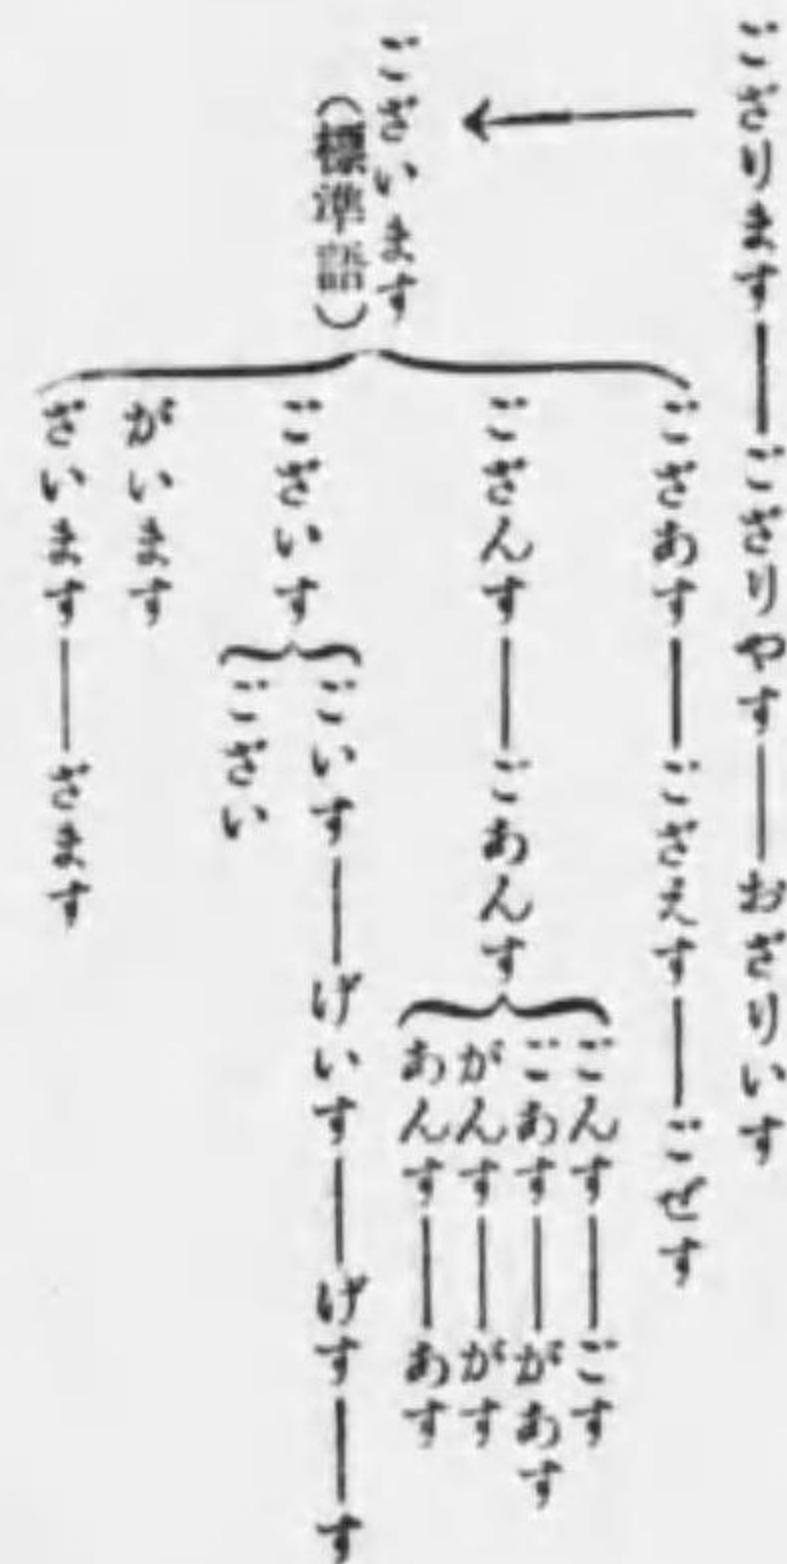 ござります――ござりやす――おざりいす
ございます
（標準語）
ござあす――ござえす――ごぜす
ござんす――ごあんす
ごんす――ごす
ごあす――があす
がんす――がす
あんす――あす
ございす
ごいす――げいす――げす――す
ござい
がいます
ざいます――ざます